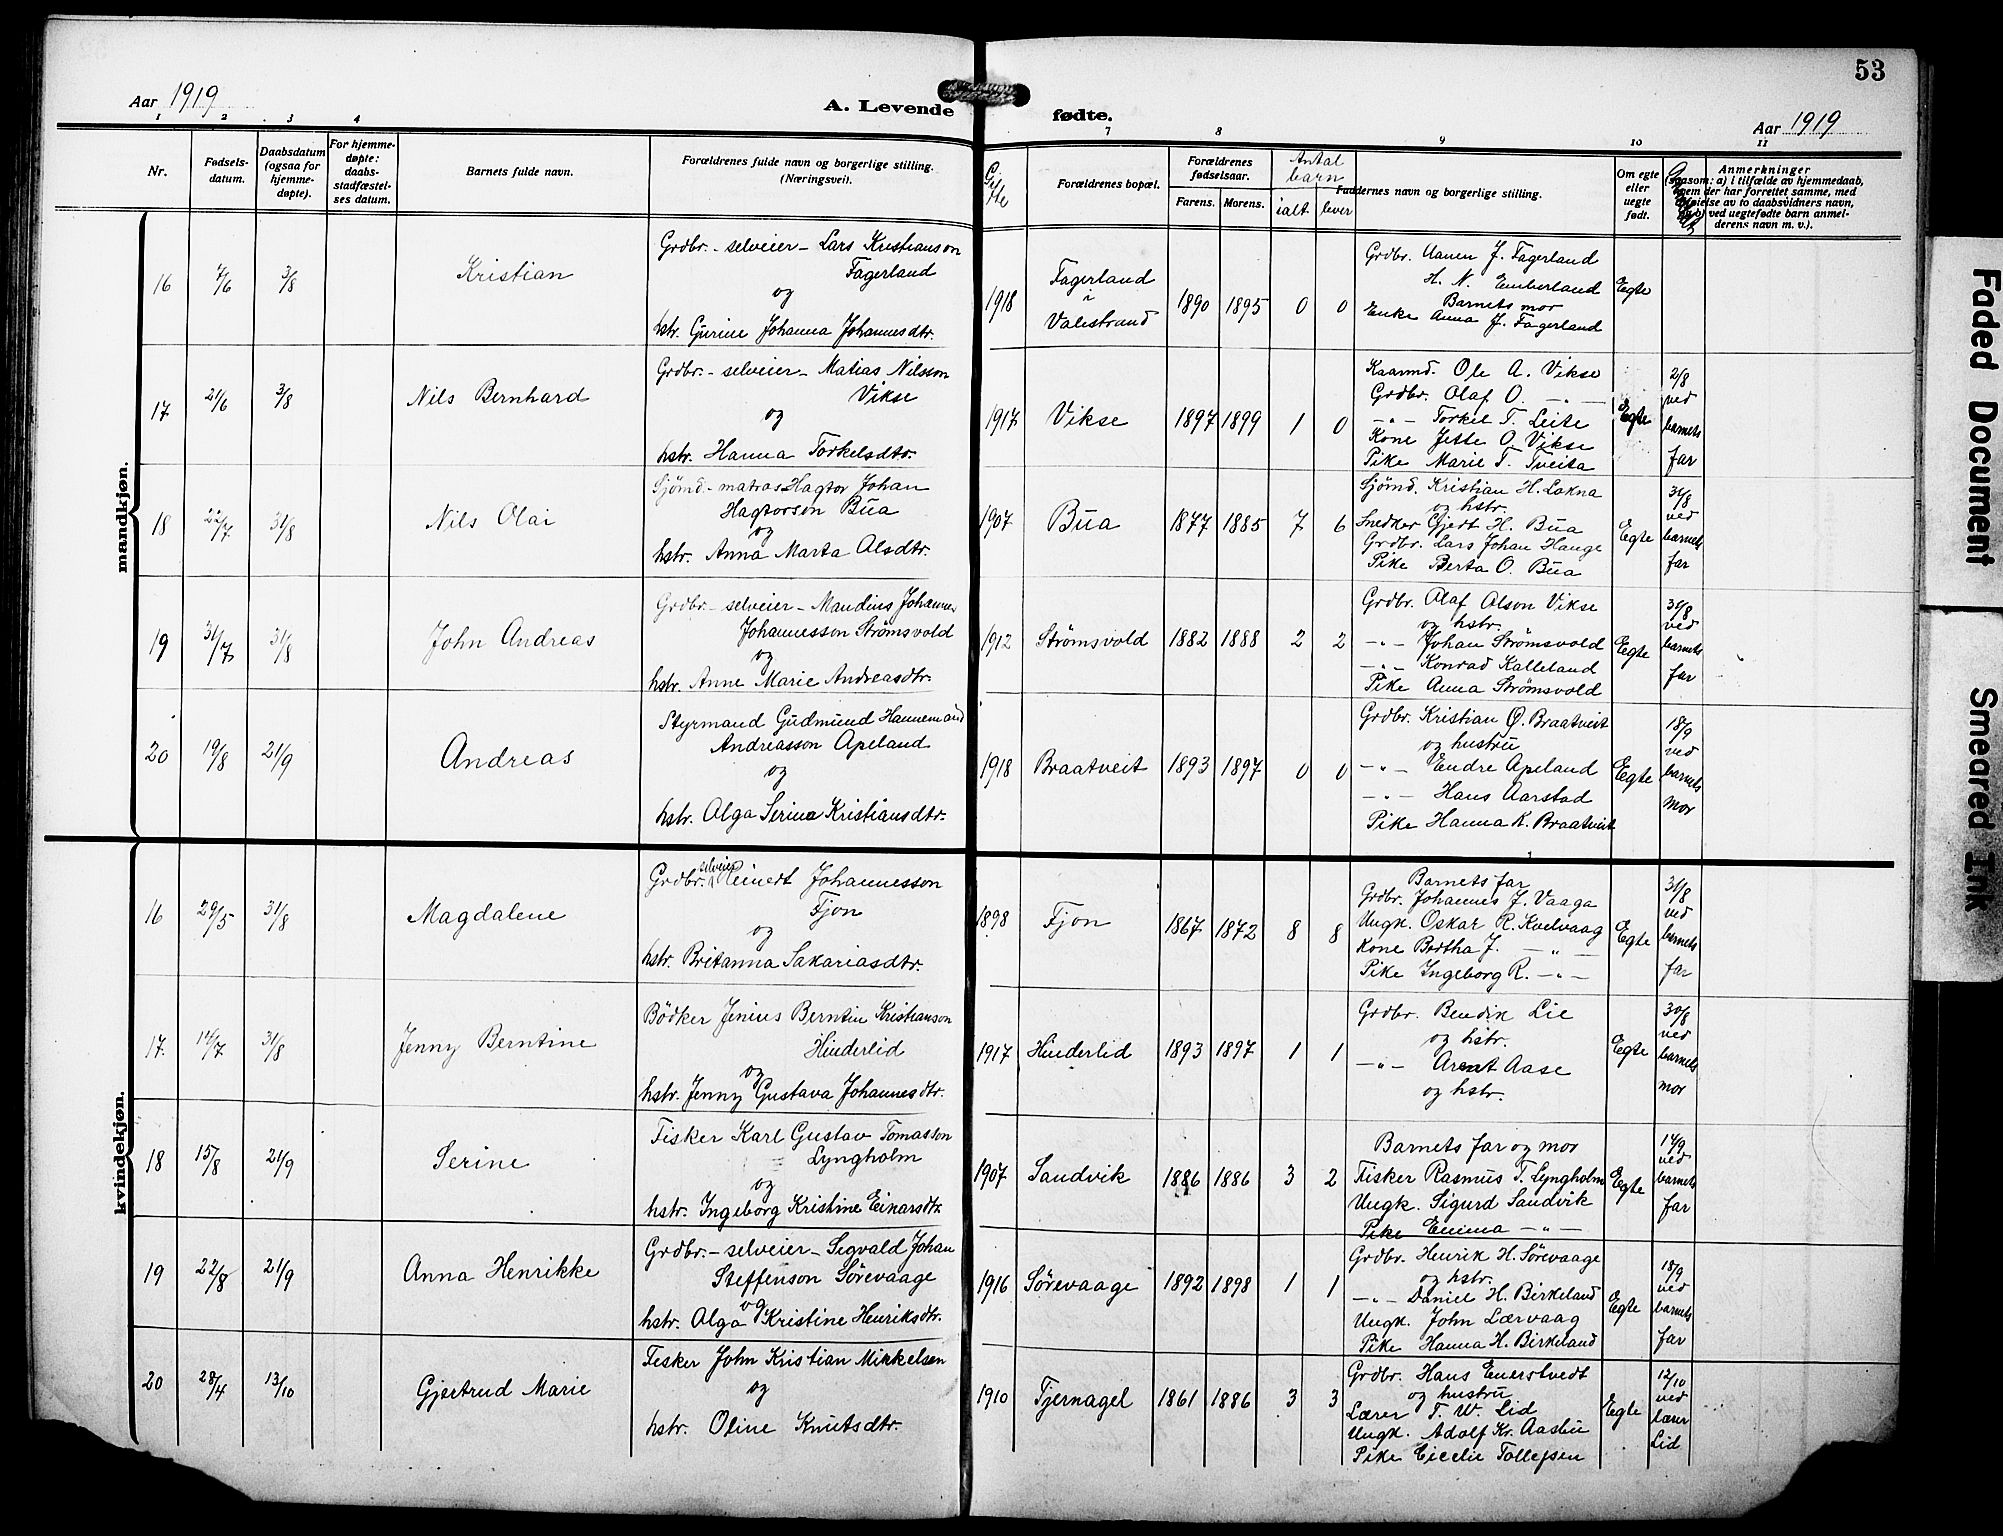 53
Aar 1919
A. Levende fødte.
Aar 1919
1 2 3 4 7 8 9 10 11
Nr.
Fødsels-
datum.
Daabsdatum
(ogsaa for
hjemme-
døpte).
For hjemme-
døpte:
daabs-
stadfæstel-
ses datum.
Barnets fulde navn.
Forældrenes fulde navn og borgerlige stilling.
(Næringsvei).
Gifte
Forældrenes bopæl.
Forældrenes
fødselsaar.
Farens. Morens.
Antal
barn
ialt. lever
Faddernes navn og borgerlige stilling.
Om egte
eller
uegte
født.
Anmerkninger
(saasom: a) i tilfælde av hjemmedaab,
hvem der har forrettet samme, med
tilføielse av to daabsvidners navn,
b) ved uegtefødte barn anmel-
derens navn m. v.).
mandkjøn.
16 7/6 3/8 Kristian
Grdbr. - selveier - Lars Kristianson
Fagerland
og
hstr. Gurine Johanna Johannesdtr.
1918 Fagerland
i
Valestrand
1890 1895 0 0
Grdbr. J. Fagerland
H. N. Emberland
Barnets mor
Enke Anna J. Fagerland
Egte
17 21/6 3/8 Nils Bernhard
Grdbr. - selveier - Matias Nilsson
Vikse
og
hstr. Hanna Torkelsdtr.
1917 Vikse 1897 1899 1 0
Kaarmd. Ole A. Vikse
Grdbr. Olaf O. -"-
-"- Torkel T. Leite
Kone Jette O. Vikse
Pike Marie T. Tveita
Egte
2/8
ved
barnets
far
18 22/7 31/8 Nils Olai
Sjömd. - matros Hagtor Johan
Hagtorson Bua
og
hstr. Anna Marta Olsdtr.
1907 Bua 1877 1885 7 6
Sjömd. Kristian H. Lokna
og hstr.
Snedker Gjert H. Bua
Grdbr. Lars Johan Hauge
Pike Berta O. Bua
Egte
31/8
ved
barnets
far
19 31/7 31/8 John Andreas
Grdbr. - selveier - Maudius Johannes
Johannesson Strømsvold
og
hstr. Anne Marie Andreasdtr.
1912 Strømsvold 1882 1888 2 2
Grdbr. Olaf Olson Vikse
og hstr.
-"- Johan Strømsvold
-"- Konrad Kalleland
Pike Anna Strømsvold
Egte
31/8
ved
barnets
far
20 19/8 21/9 Andreas
Styrmand Gudmund Hannemand
Andreasson Apeland
og
hstr. Olga Serina Kristiansdtr.
1918 Braatveit 1893 1897 0 0
Grdbr. Kristian Ø. Braatveit
og hustru
-"- Endre Apeland
-"- Hans Aarstad
Pike Hanna K. Braatveit
Egte
18/9
ved
barnets
mor
kvindekjøn.
16 29/5 31/8 Magdalene
selveier
Grdbr. Reinert Johannesson
Fjon
og
hstr. Britanna Sakariasdtr.
1898 Fjon 1867 1872 8 8
Barnets far
Grdbr. Johannes J. Vaaga
Ungk. Oskar R. Kvelvaag
Kone Bertha J. -"-
Pike Ingeborg R. -"-
Egte
31/8
ved
barnets
far
17. 14/7 31/8 Jenny Berntine
Bödker Jenius Berntin Kristianson
Hinderlid
og
hstr. Jenny Gustava Johannesdtr.
1917 Hinderlid 1893 1897 1 1
Grdbr. Bendik Lie
og hstr.
-"- Arent Aase
og hstr.
Egte
30/8
ved
barnets
mor
18 15/8 21/9 Serine
Fisker Karl Gustav Tomasson
Lyngholm
og
hstr. Ingeborg Kristine Einarsdtr.
1907 Sandvik 1886 1886 3 2
Barnets far og mor
Fisker Rasmus T. Lyngholm
Ungk. Sigurd Sandvik
Pike Emma -"-
Egte
14/9
ved
barnets
far
19 22/8 21/9 Anna Henrikke
Grdbr. - selveier - Sigvald Johan
Steffenson Sørevaage
og
hstr. Olga Kristine Henriksdtr.
1916 Sørevaage 1892 1898 1 1
Grdbr. Henrik H. Sørevaage
og hstr.
-"- Daniel H. Birkeland
Ungk. John Lærvaag
Pike Hanna H. Birkeland
Egte
18/9
ved
barnets
far
20 28/4 13/10 Gjertrud Marie
Fisker John Kristian Mikkelsen
og
hstr. Oline Knutsdtr.
1910 Tjernagel 1861 1886 3 3
Grdbr. Hans Enerstvedt
og hustru
Lærer T. W. Lid
Ungk. Adolf Kr. Aasbu
Pike Cicelie Tollefsen
Egte
12/10
ved
lærer
Lid
Faded Document
Smeared Ink